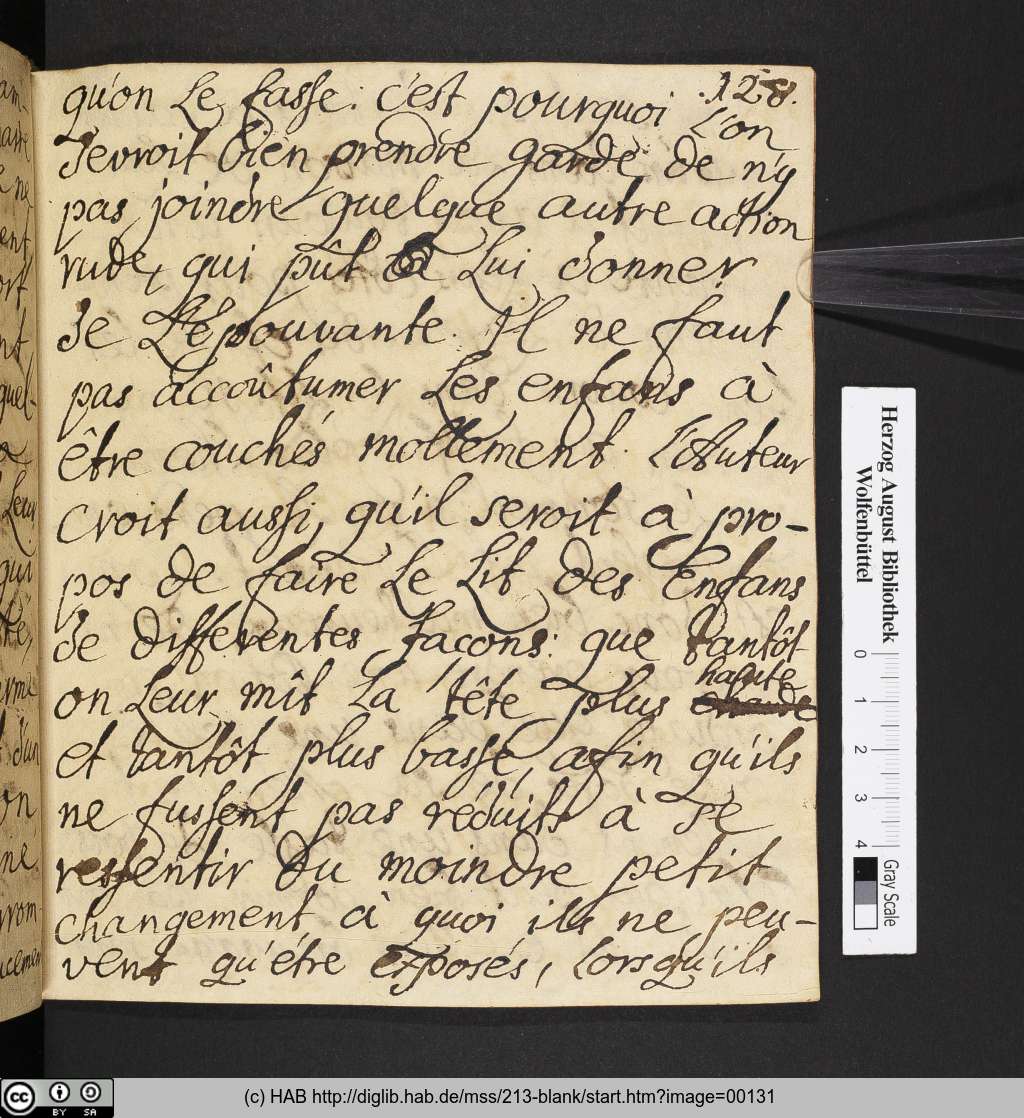 .128.
qu'on le fasse: c'est pourquoi l'on
devroit bien prendre garde de n'y
pas joindre quelque autre action
rude, qui pût lui donner
de l'épouvante. Il ne faut
pas accoûtumer les enfans à
être couchés mollement. L'Auteur
croit aussi, qu'il seroit à pro-
pos de faire le lit des Enfans
de differentes facons: que tantôt
on leur mît la tête plus haute
et tantôt plus basse, afin qu'ils
ne fussent pas réduits à se
ressentir du moindre petit
changement à quoi ils ne peu-
vent qu'étre exposés, lorsqu'ils
Herzog August Bibliothek
Wolfenbüttel
0 1 2 3 4
Gray Scale
cc BY SA
(c) HAB http://diglib.hab.de/mss/213-blank/start.htm?image=00131